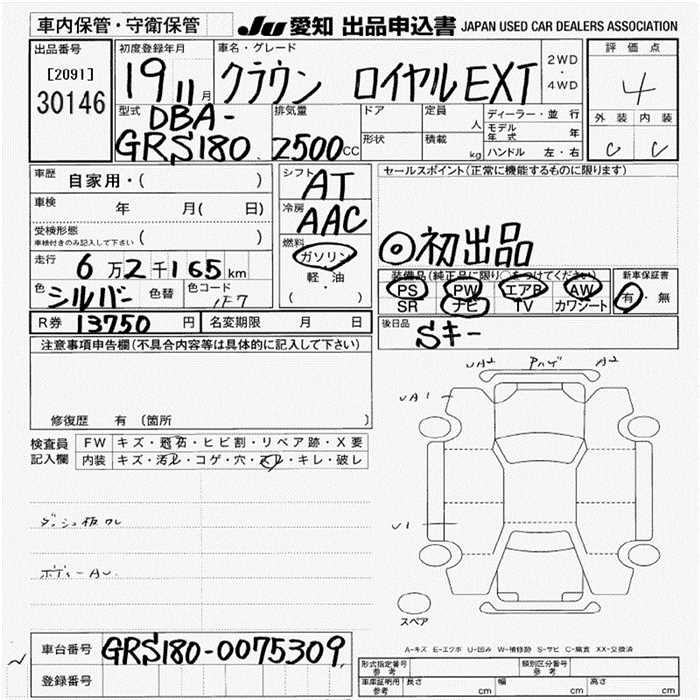 車内保管・守衛保管
JU 愛知 出品申込書 JAPAN USED CAR DEALERS ASSOCIATION
出品番号
[2091]
30146
初度登録年月
19 11 月
車名・グレード
クラウン ロイヤルEXT
2WD
・
4WD
評価点
4
外装 内装
C C
型式
DBA-
GRS180
排気量
2500cc
ドア
形状
定員
人
積載
kg
ディーラー・並行
モデル年式 年
ハンドル 左・右
車歴
自家用・( )
車検 年 月( 日)
受検形態
車検付きのみ記入して下さい ( )
走行 6万2千165km
色 シルバー 色替 色コード 1F7
R券 13750 円 名変期限 月 日
シフト
AT
冷房
AAC
燃料
ガソリン
軽・油
( )
セールスポイント(正常に機能するものに限ります)
◎初出品
装備品(純正品に限り○をつけてください)
PS PW エアB AW
SR ナビ TV カワシート
新車保証書
有・無
後日品
Sキー
注意事項申告欄(不具合内容等は具体的に記入して下さい)
修復歴 有 (箇所 )
検査員
記入欄
FW キズ・飛石・ヒビ割・リペア跡・X要
内装 キズ・汚レ・コゲ・穴・スレ・キレ・破レ
ダッシュ板ワレ
ボディーAU
UA2 A2
UA1
U1
スペア
A-キズ E-エクボ U-凹み W-補修跡 S-サビ C-腐食 XX-交換済
車台番号 GRS180-0075309
登録番号
形式指定番号
参考
類別区分番号
参考
車庫証明用
参考
長さ cm 幅 cm 高さ cm